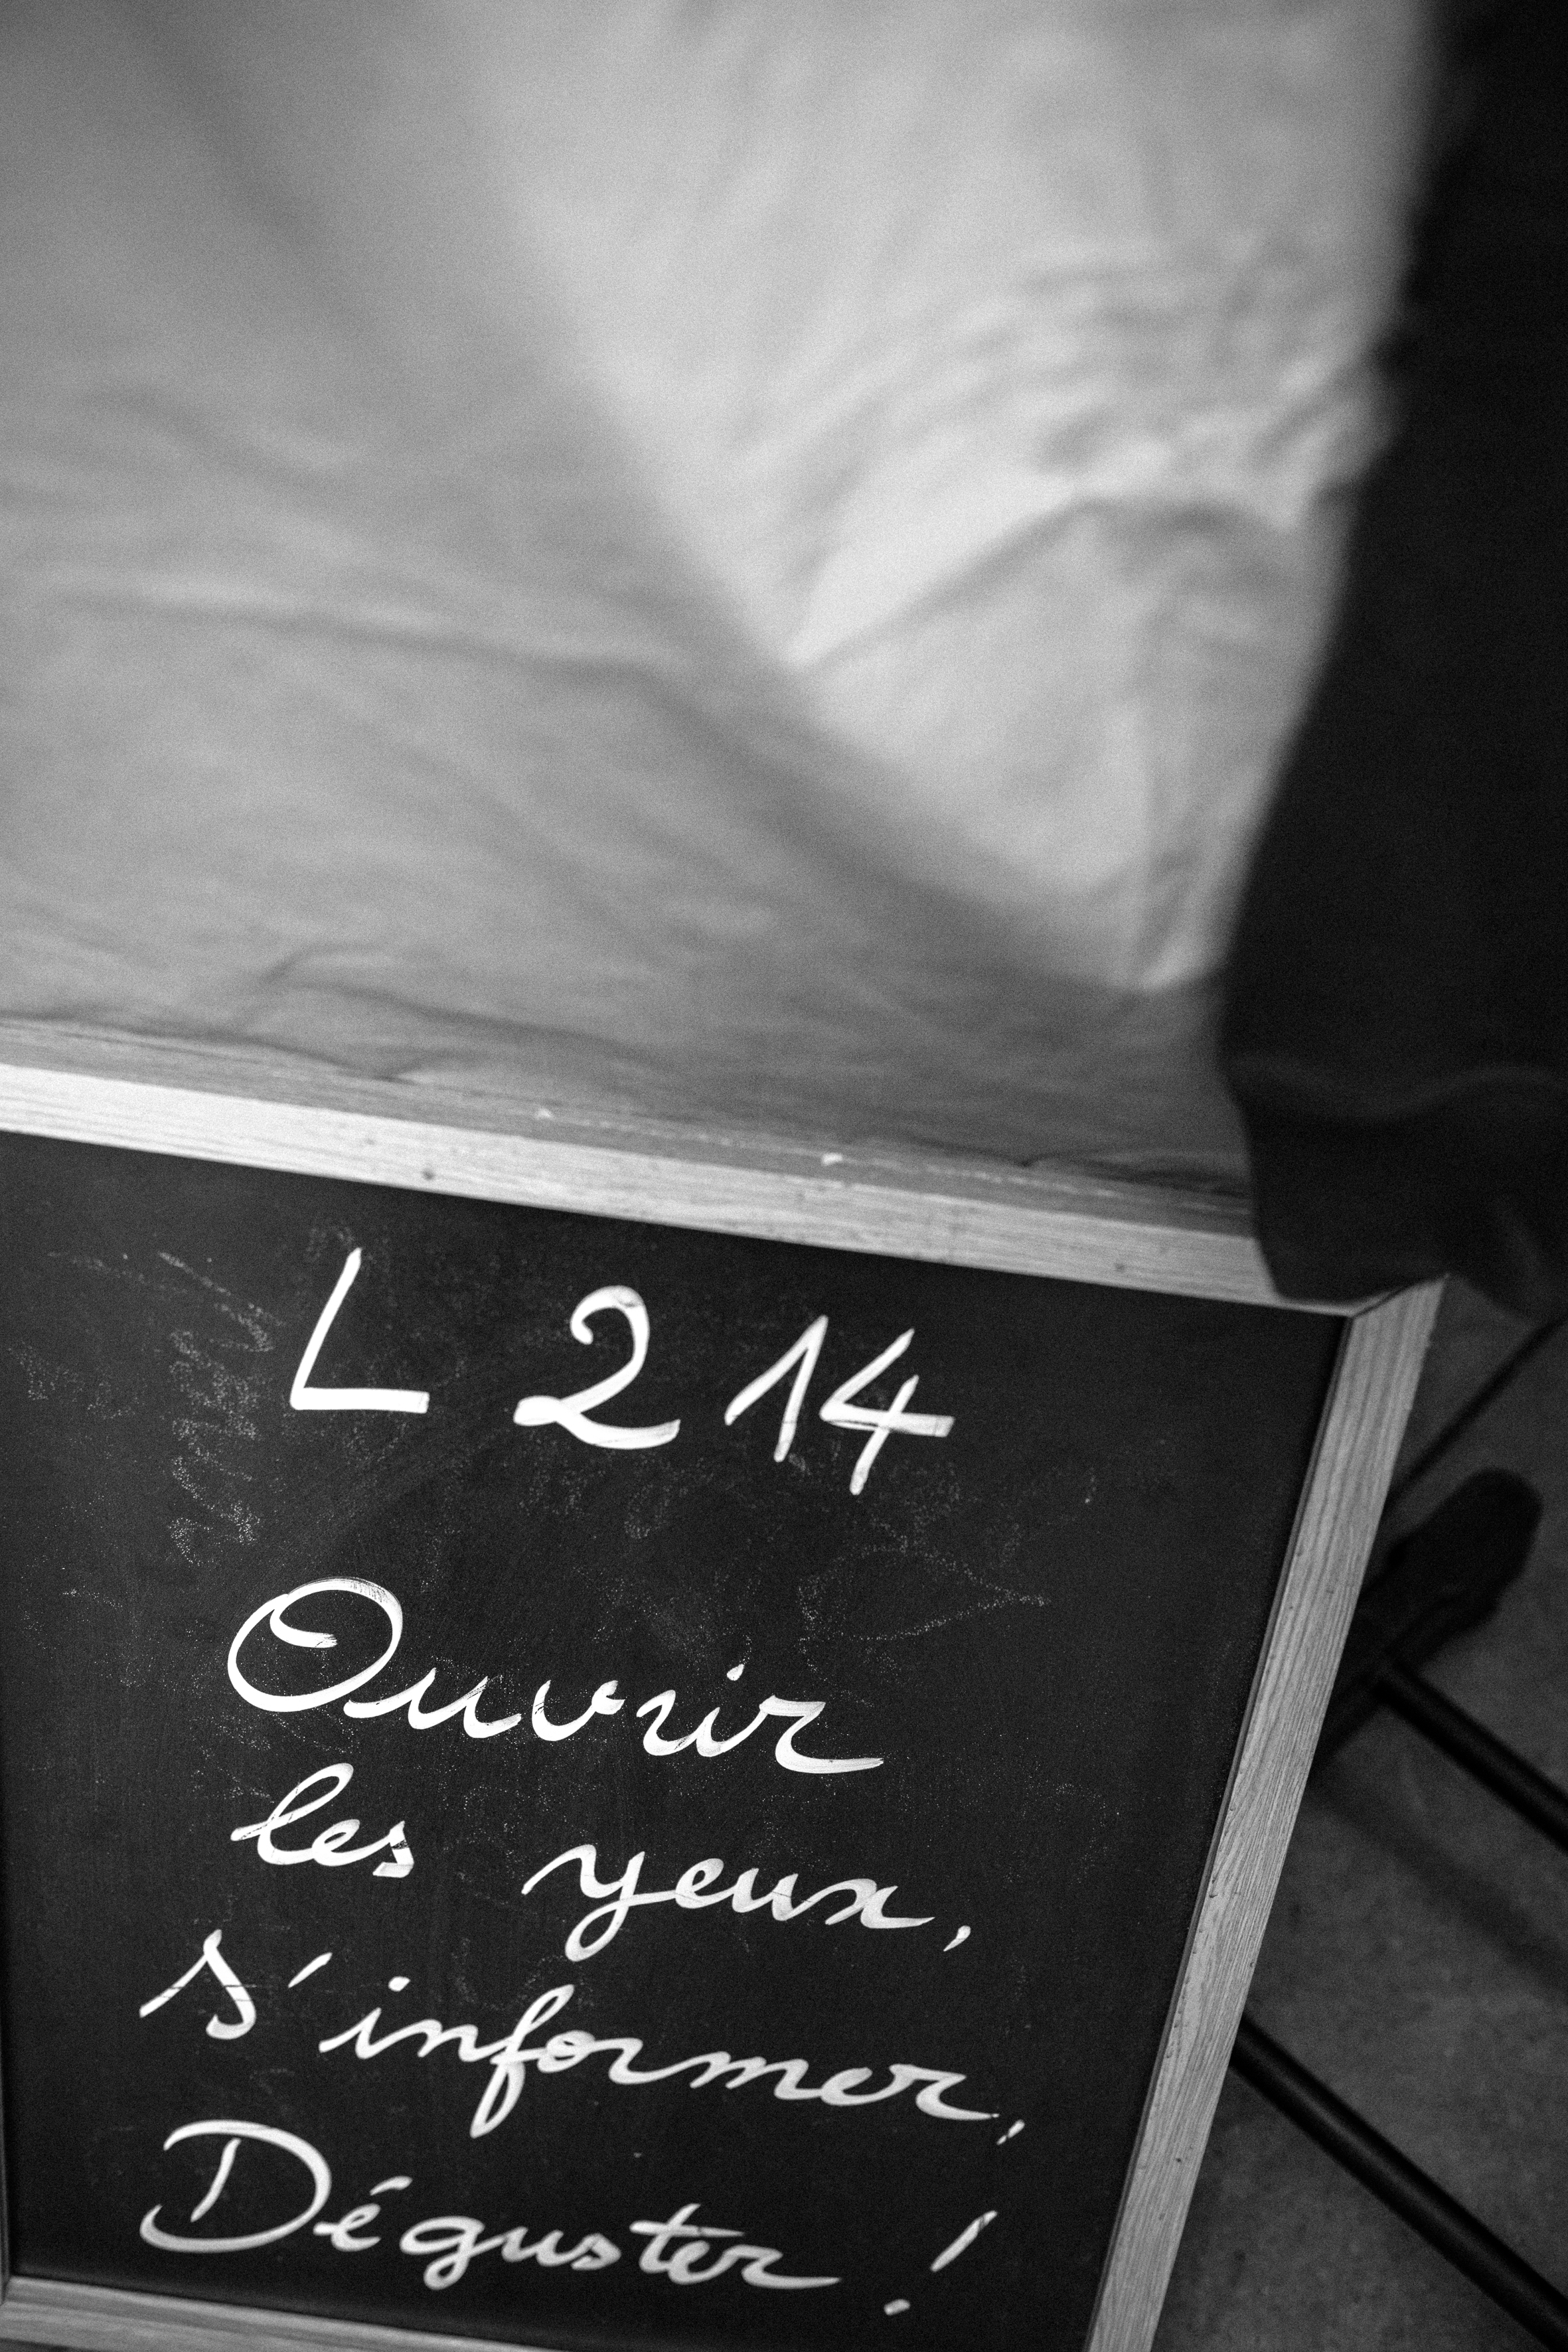 L214
Ouvrir
les yeux,
s'informer,
Déguster !